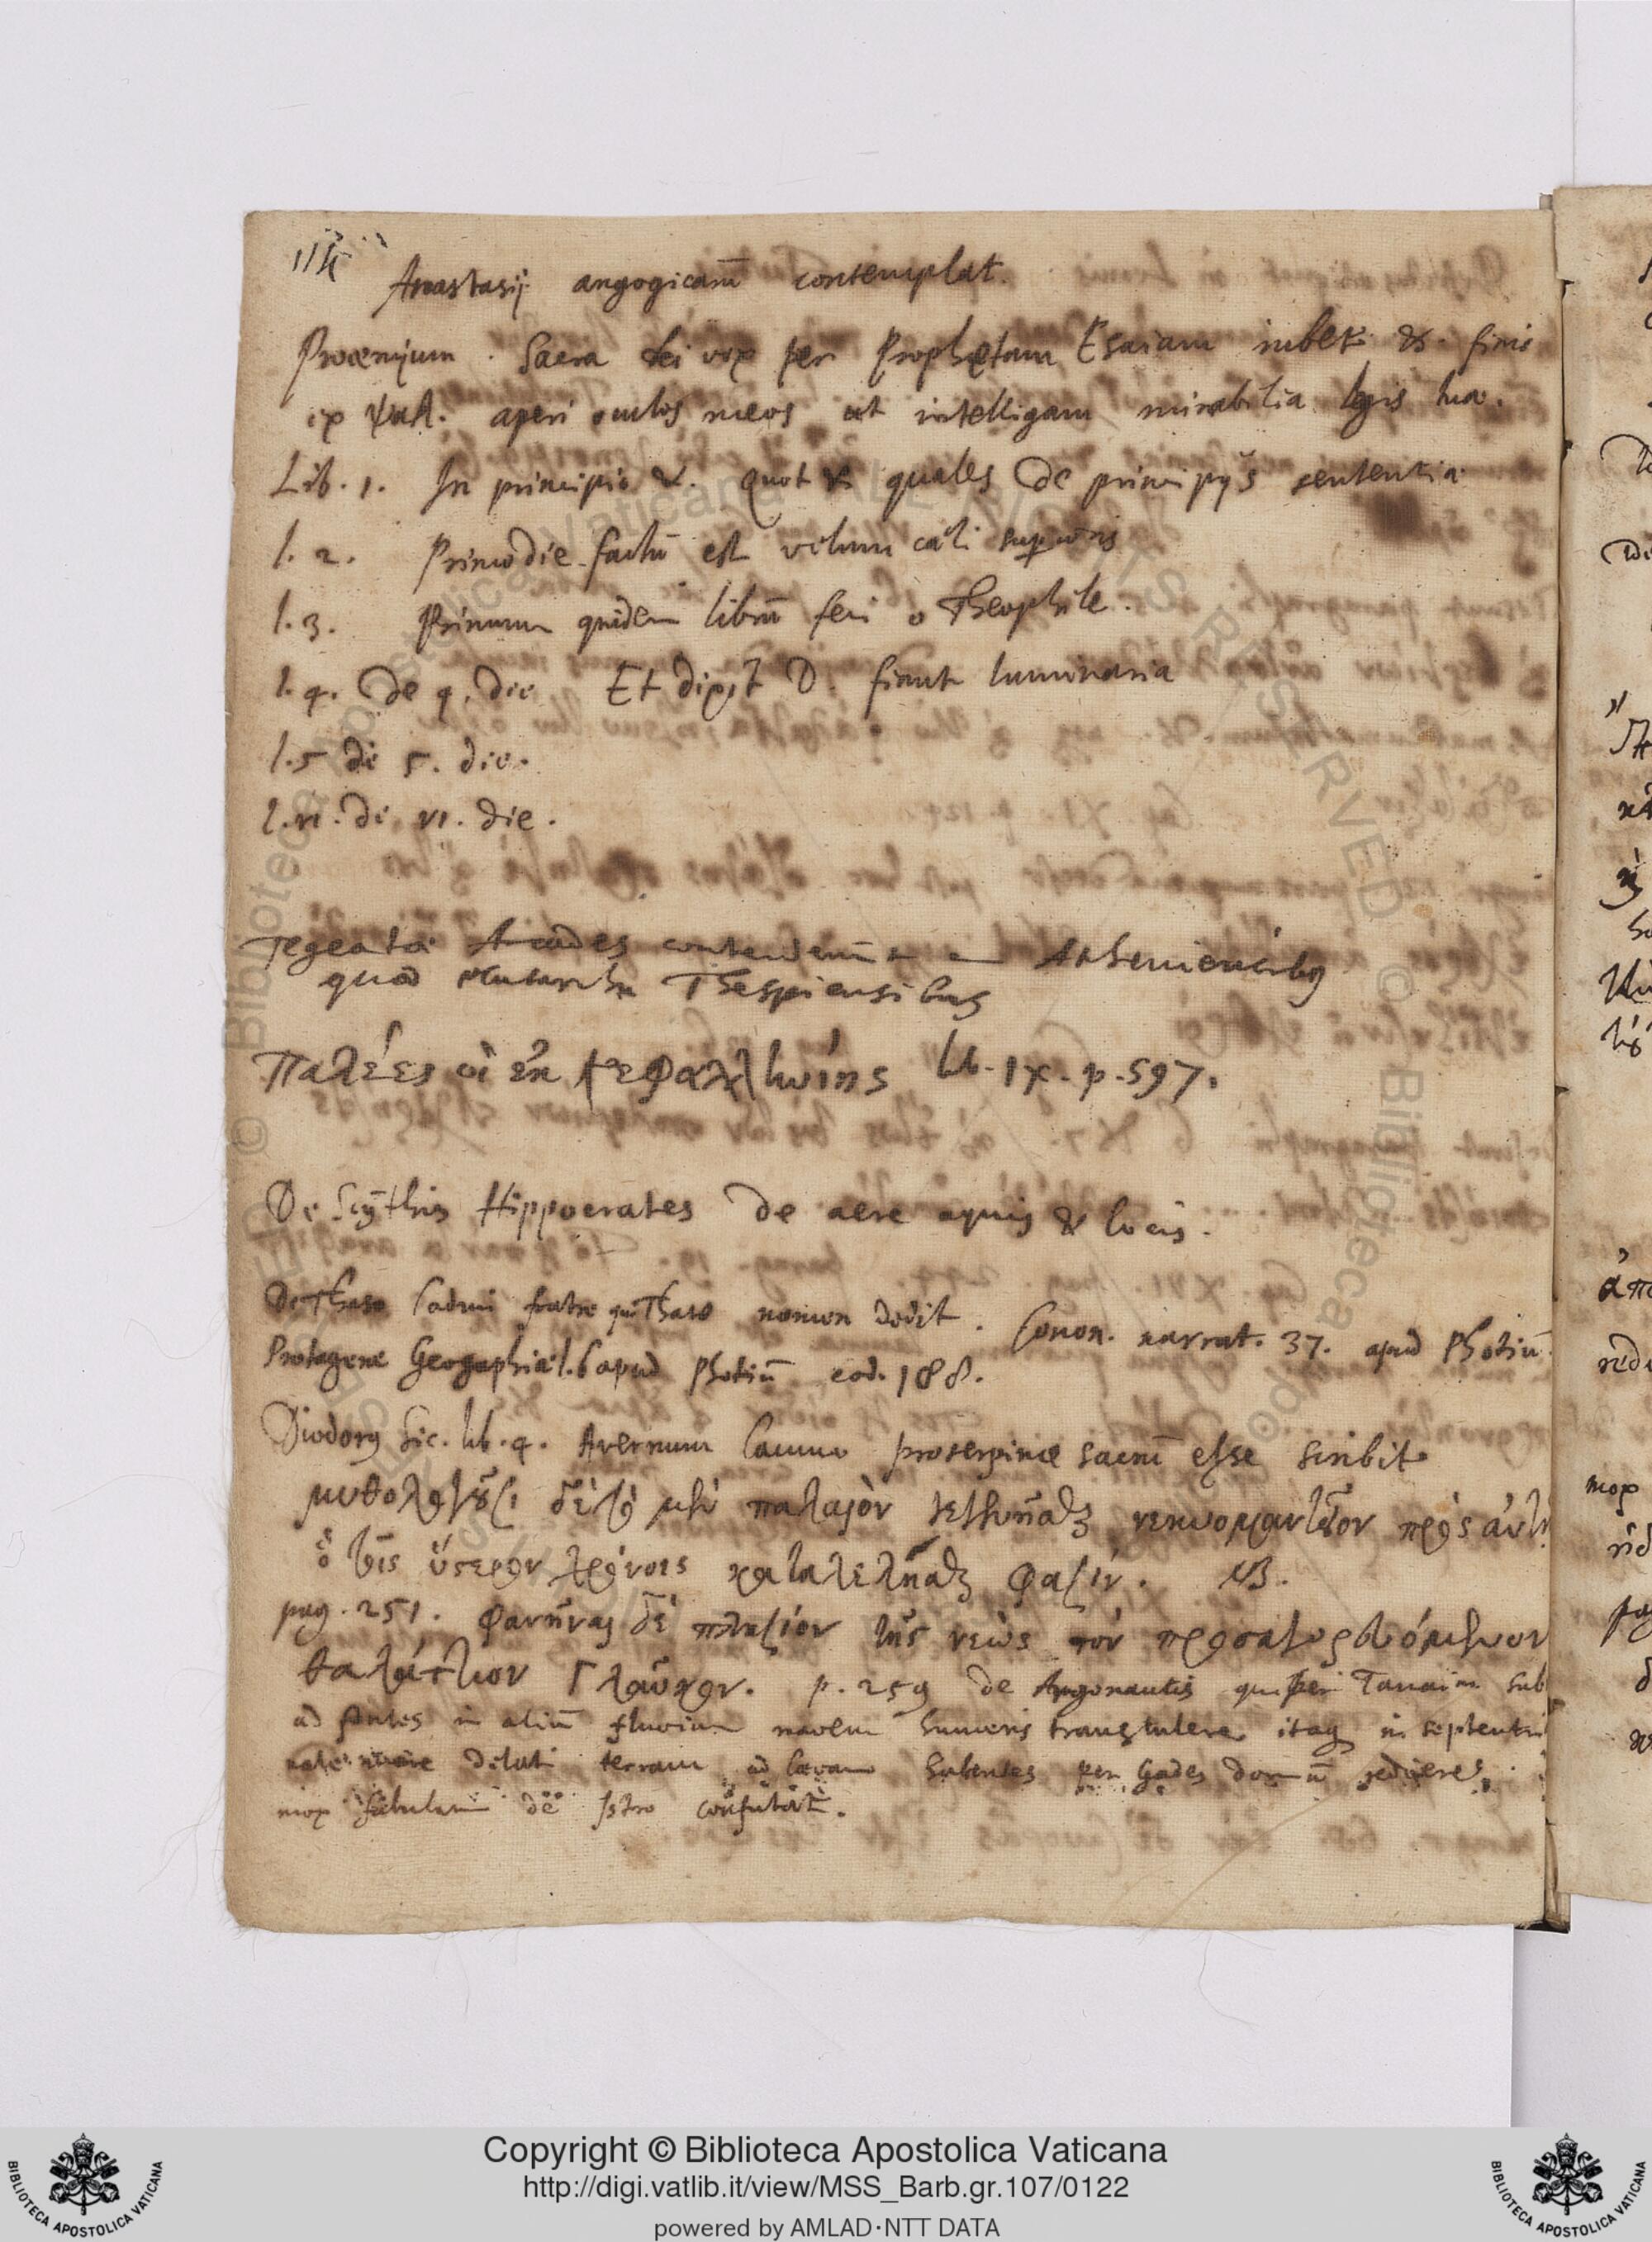 114
Anastasij angogicarū contemplat.
Procemjum. Sacra dei vox per Prophetam Esaiam iubet &. finis
ex ψαλ. aperi oculos meos ut intelligam mirabilia legis tuæ.
Lib. 1. In principio &. quot & quales de principijs sententiæ
l. 2. Primo die factū est velum cæli superioris
l. 3. Primum quidem librū feci o Theophile.
l. 4. De 4. die Et dixit D. fiant luminaria
l. 5 de 5. die.
l. VI. de VI. die.
Tegeatæ Arcades contenderūt Atheniensibus
quod Thespiensibus
Παλέες οἱ ἐκ Κεφαλληνίης lib. IX. p. 597.
De Scythis Hippocrates de aere aquis & locis.
De Thaso Cadmi fratre qui Thaso nomen dedit. Conon. narrat. 37. apud Photiū
Protagoræ Geographiæ l. 6 apud Photiū cod. 188.
Diodorus Sic. lib. 4. Avernum lacum proserpinæ sacrū esse scribit
μυθολογοῦσι δὲ τὸ μὲν παλαιὸν γεγενῆσθαι νεκυομαντεῖον πρὸς αὐτῇ
ὃ τοῖς ὕστερον χρόνοις καταλελύσθαι φασίν. NB.
pag. 251. φανῆναι δὲ πλησίον τῆς νεὼς τὸν προσαγορευόμενον
θαλάττιον Γλαῦκον. p. 259 de Argonautis qui per Tanaim sub
ad fontes in aliū fluvium navem humeris transtulere itaq in septentri
nale mare delati terram ad lævam habentes per Gades domū rediere.
mox fabulam de Istro confutat.
Copyright © Biblioteca Apostolica Vaticana
http://digi.vatlib.it/view/MSS_Barb.gr.107/0122
powered by AMLAD·NTT DATA